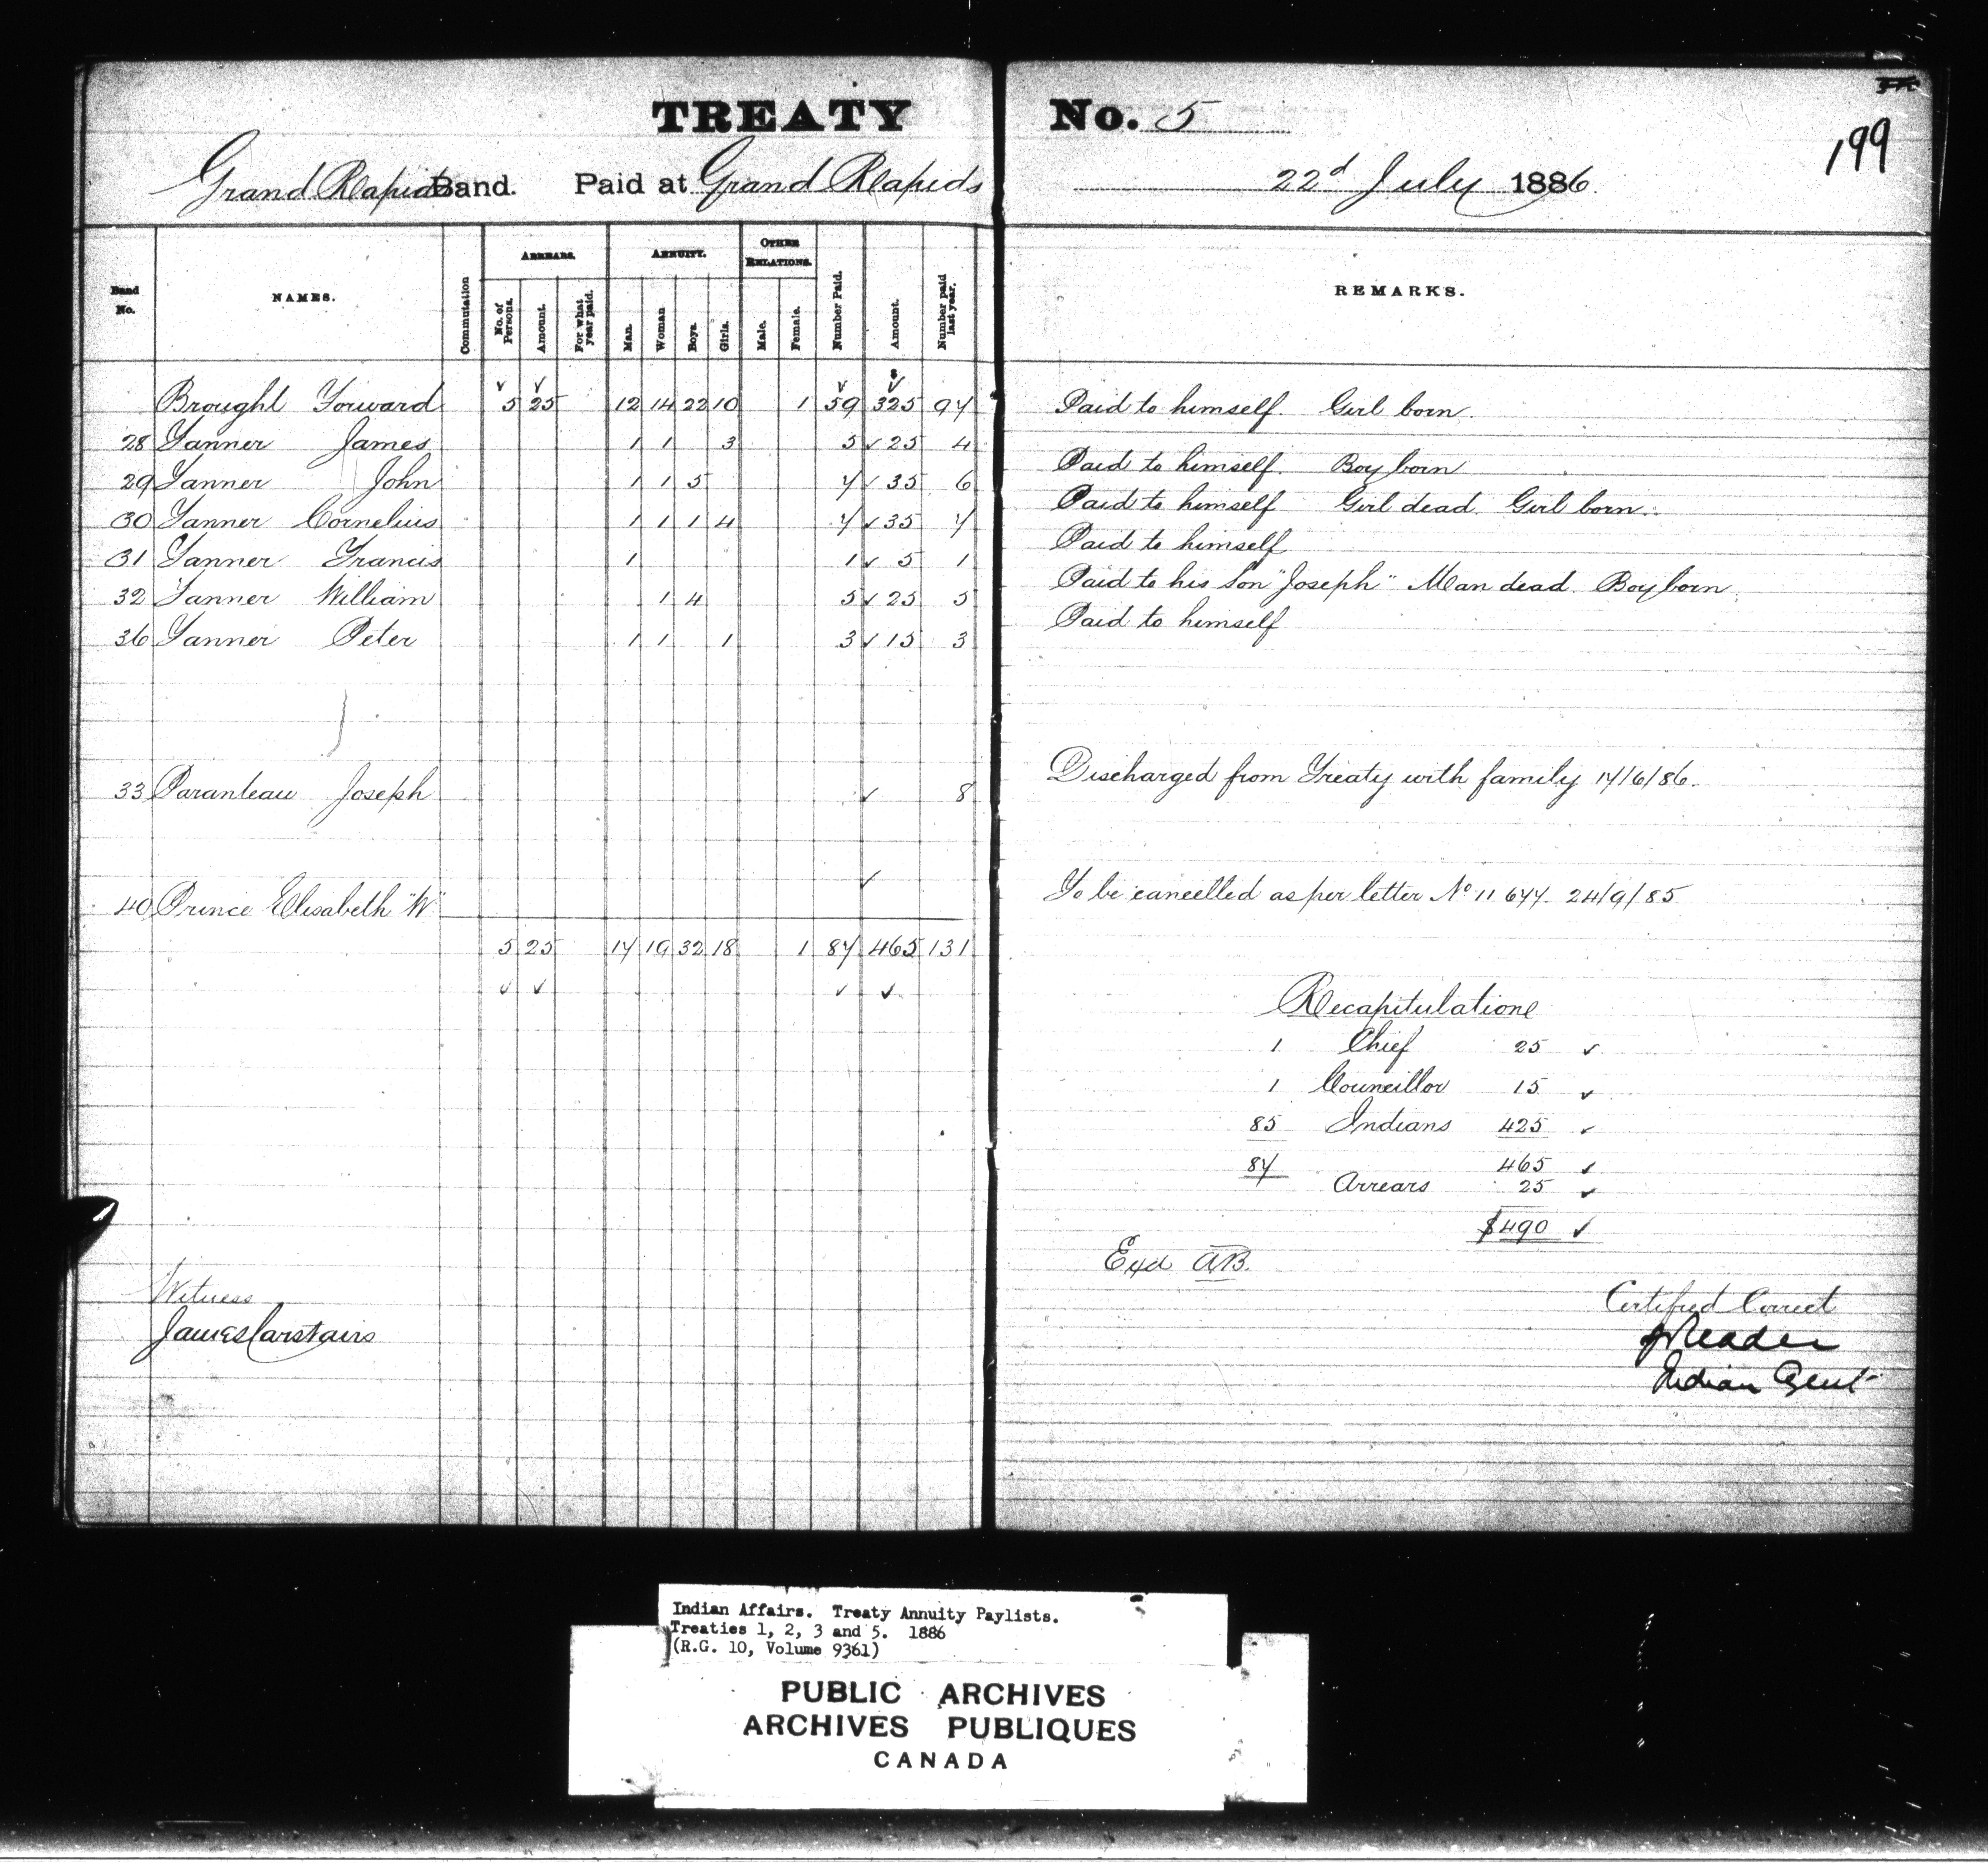 TREATY No. 5
199
Grand Rapids Band. Paid at Grand Rapids 22d July 1886.
Band No. NAMES. Commutation ARREARS. No. of Persons. Amount. For what year paid. ANNUITY. Man. Woman Boys. Girls. OTHER RELATIONS. Male. Female. Number Paid. Amount. Number paid last year. REMARKS.
Brought Forward 5 25 12 14 22 10 1 59 325 97
28 Tanner James 1 1 3 5 ✓ 25 4 Paid to himself. Girl born.
29 Tanner John 1 1 5 7 ✓ 35 6 Paid to himself. Boy born
30 Tanner Cornelius 1 1 1 4 7 ✓ 35 7 Paid to himself Girl dead. Girl born.
31 Tanner Francis 1 1 ✓ 5 1 Paid to himself
32 Tanner William 1 4 5 ✓ 25 5 Paid to his son "Joseph" Man dead. Boy born.
36 Tanner Peter 1 1 1 3 ✓ 15 3 Paid to himself
33 Paranteau Joseph ✓ 8 Discharged from Treaty with family 17/6/86.
40 Prince Elisabeth "W" ✓ To be cancelled as per letter No 11677. 24/9/85
5 25 17 19 32 18 1 87 465 131
Recapitulation
1 Chief 25 ✓
1 Councillor 15 ✓
85 Indians 425 ✓
87 465 ✓
Arrears 25 ✓
$490 ✓
Exd AB.
Witness
James Carstairs
Certified Correct
J Reader
Indian Agent
Indian Affairs. Treaty Annuity Paylists.
Treaties 1, 2, 3 and 5. 1886
(R.G. 10, Volume 9361)
PUBLIC ARCHIVES
ARCHIVES PUBLIQUES
CANADA